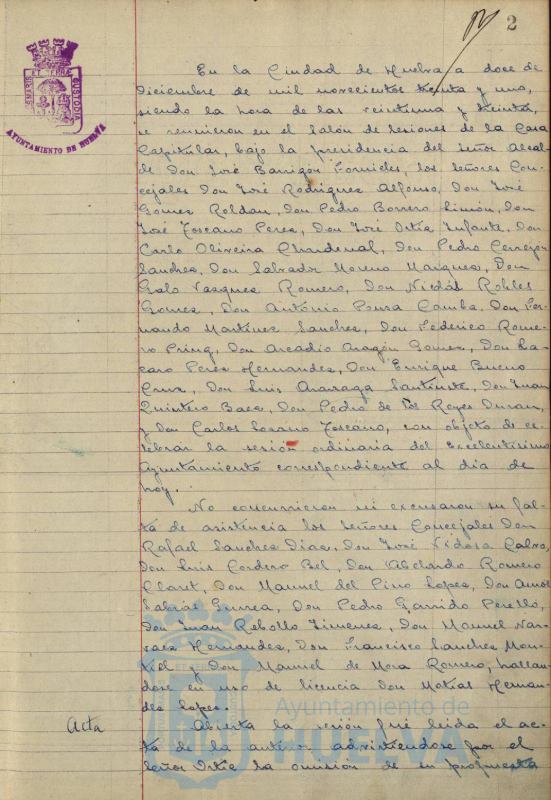 2
AYUNTAMIENTO DE HUELVA
En la Ciudad de Huelva a doce de
Diciembre de mil novecientos treinta y uno,
siendo la hora de las veintiuna y treinta,
se reunieron en el Salón de Sesiones de la Casa
Capitular, bajo la presidencia del Señor Alcal-
de Don José Barrigón Fornieles, los señores Con-
cejales Don José Rodríguez Alfonso, Don José
Gomez Roldan, Don Pedro Borrero Limón, Don
José Toscano Perez, Don José Ortiz Infante, Don
Carlo Oliveira Chardenal, Don Pedro Cerrejon
Sanchez, Don Salvador Moreno Marquez, Don
Galo Vazquez Romero, Don Nicolás Robles
Gomez, Don António Ponza Camba, Don Fer-
nando Martínez Sanchez, Don Federico Rome-
ro Don Arcadio Aragón Gomez, Don La-
zaro Perez Hernandez, Don Enrique Bueno
Cruz, Don Luis Don Juan
Quintero Baez, Don Pedro de los Reyes Duran,
y Don Carlos Lozano Toscano, con objeto de ce-
lebrar la sesión ordinaria del Excelentísimo
Ayuntamiento correspondiente al dia de
hoy.
No concurrieron ni excusaron su fal-
ta de asistencia los Señores Concejales Don
Rafael Sanchez Diaz, Don José Vidosa Calvo,
Don Luis Cordero Bel, Don Abelardo Romero
Claret, Don Manuel del Pino Lopez, Don Amós
Sabrás Gurrea, Don Pedro Garrido Perelló,
Don Juan Rebollo Jimenez, Don Manuel Nar-
vaez Hernandez, Don Francisco Sanchez Mon-
tiel y Don Manuel de Mora Romero, hallan-
dose en uso de licencia Don Matías Hernan-
dez Lopez.
Acta
Abierta la sesión fué leida el ac-
ta de la anterior advirtiendose por el
Señor Ortiz la omisión de su propuesta
Ayuntamiento de
HUELVA